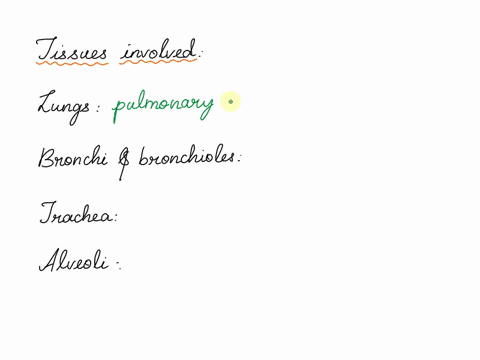 Tissues involved:
Lungs: pulmonary
Bronchi & bronchioles:
Trachea:
Alveoli: